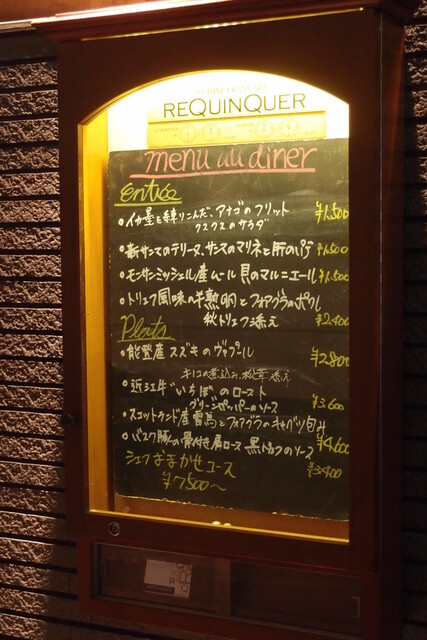 CUISINE FRANÇAISE
REQUINQUER
menu au diner
entrée
•イカ墨を練りこんだ、アナゴのフリット ¥1,500
クスクスのサラダ
•新サンマのテリーヌ、サンマのマリネと肝のパテ ¥1,500
•モンサンミッシェル産ムール貝のマルニエール ¥1,500
•トリュフ風味の半熟卵とフォアグラのポワレ
秋トリュフ添え ¥2,400
Plats
•能登産スズキのヴァプール ¥2,800
キノコの煮込み、松茸添え
•近江牛"いちぼ"のロースト
グリーンペッパーのソース ¥3,600
•スコットランド産雷鳥とフォアグラのキャベツ包み ¥4,600
•バスク豚の骨付き肩ロース 黒トリュフのソース ¥3,400
シェフおまかせコース
¥7,500〜